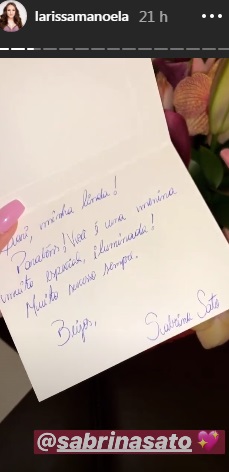 larissamanoela 21 h
Lari, minha linda!
Parabéns! Você é uma menina
muito especial, iluminada!
Muito sucesso sempre.
Beijos,
Sabrina Sato
@sabrinasato